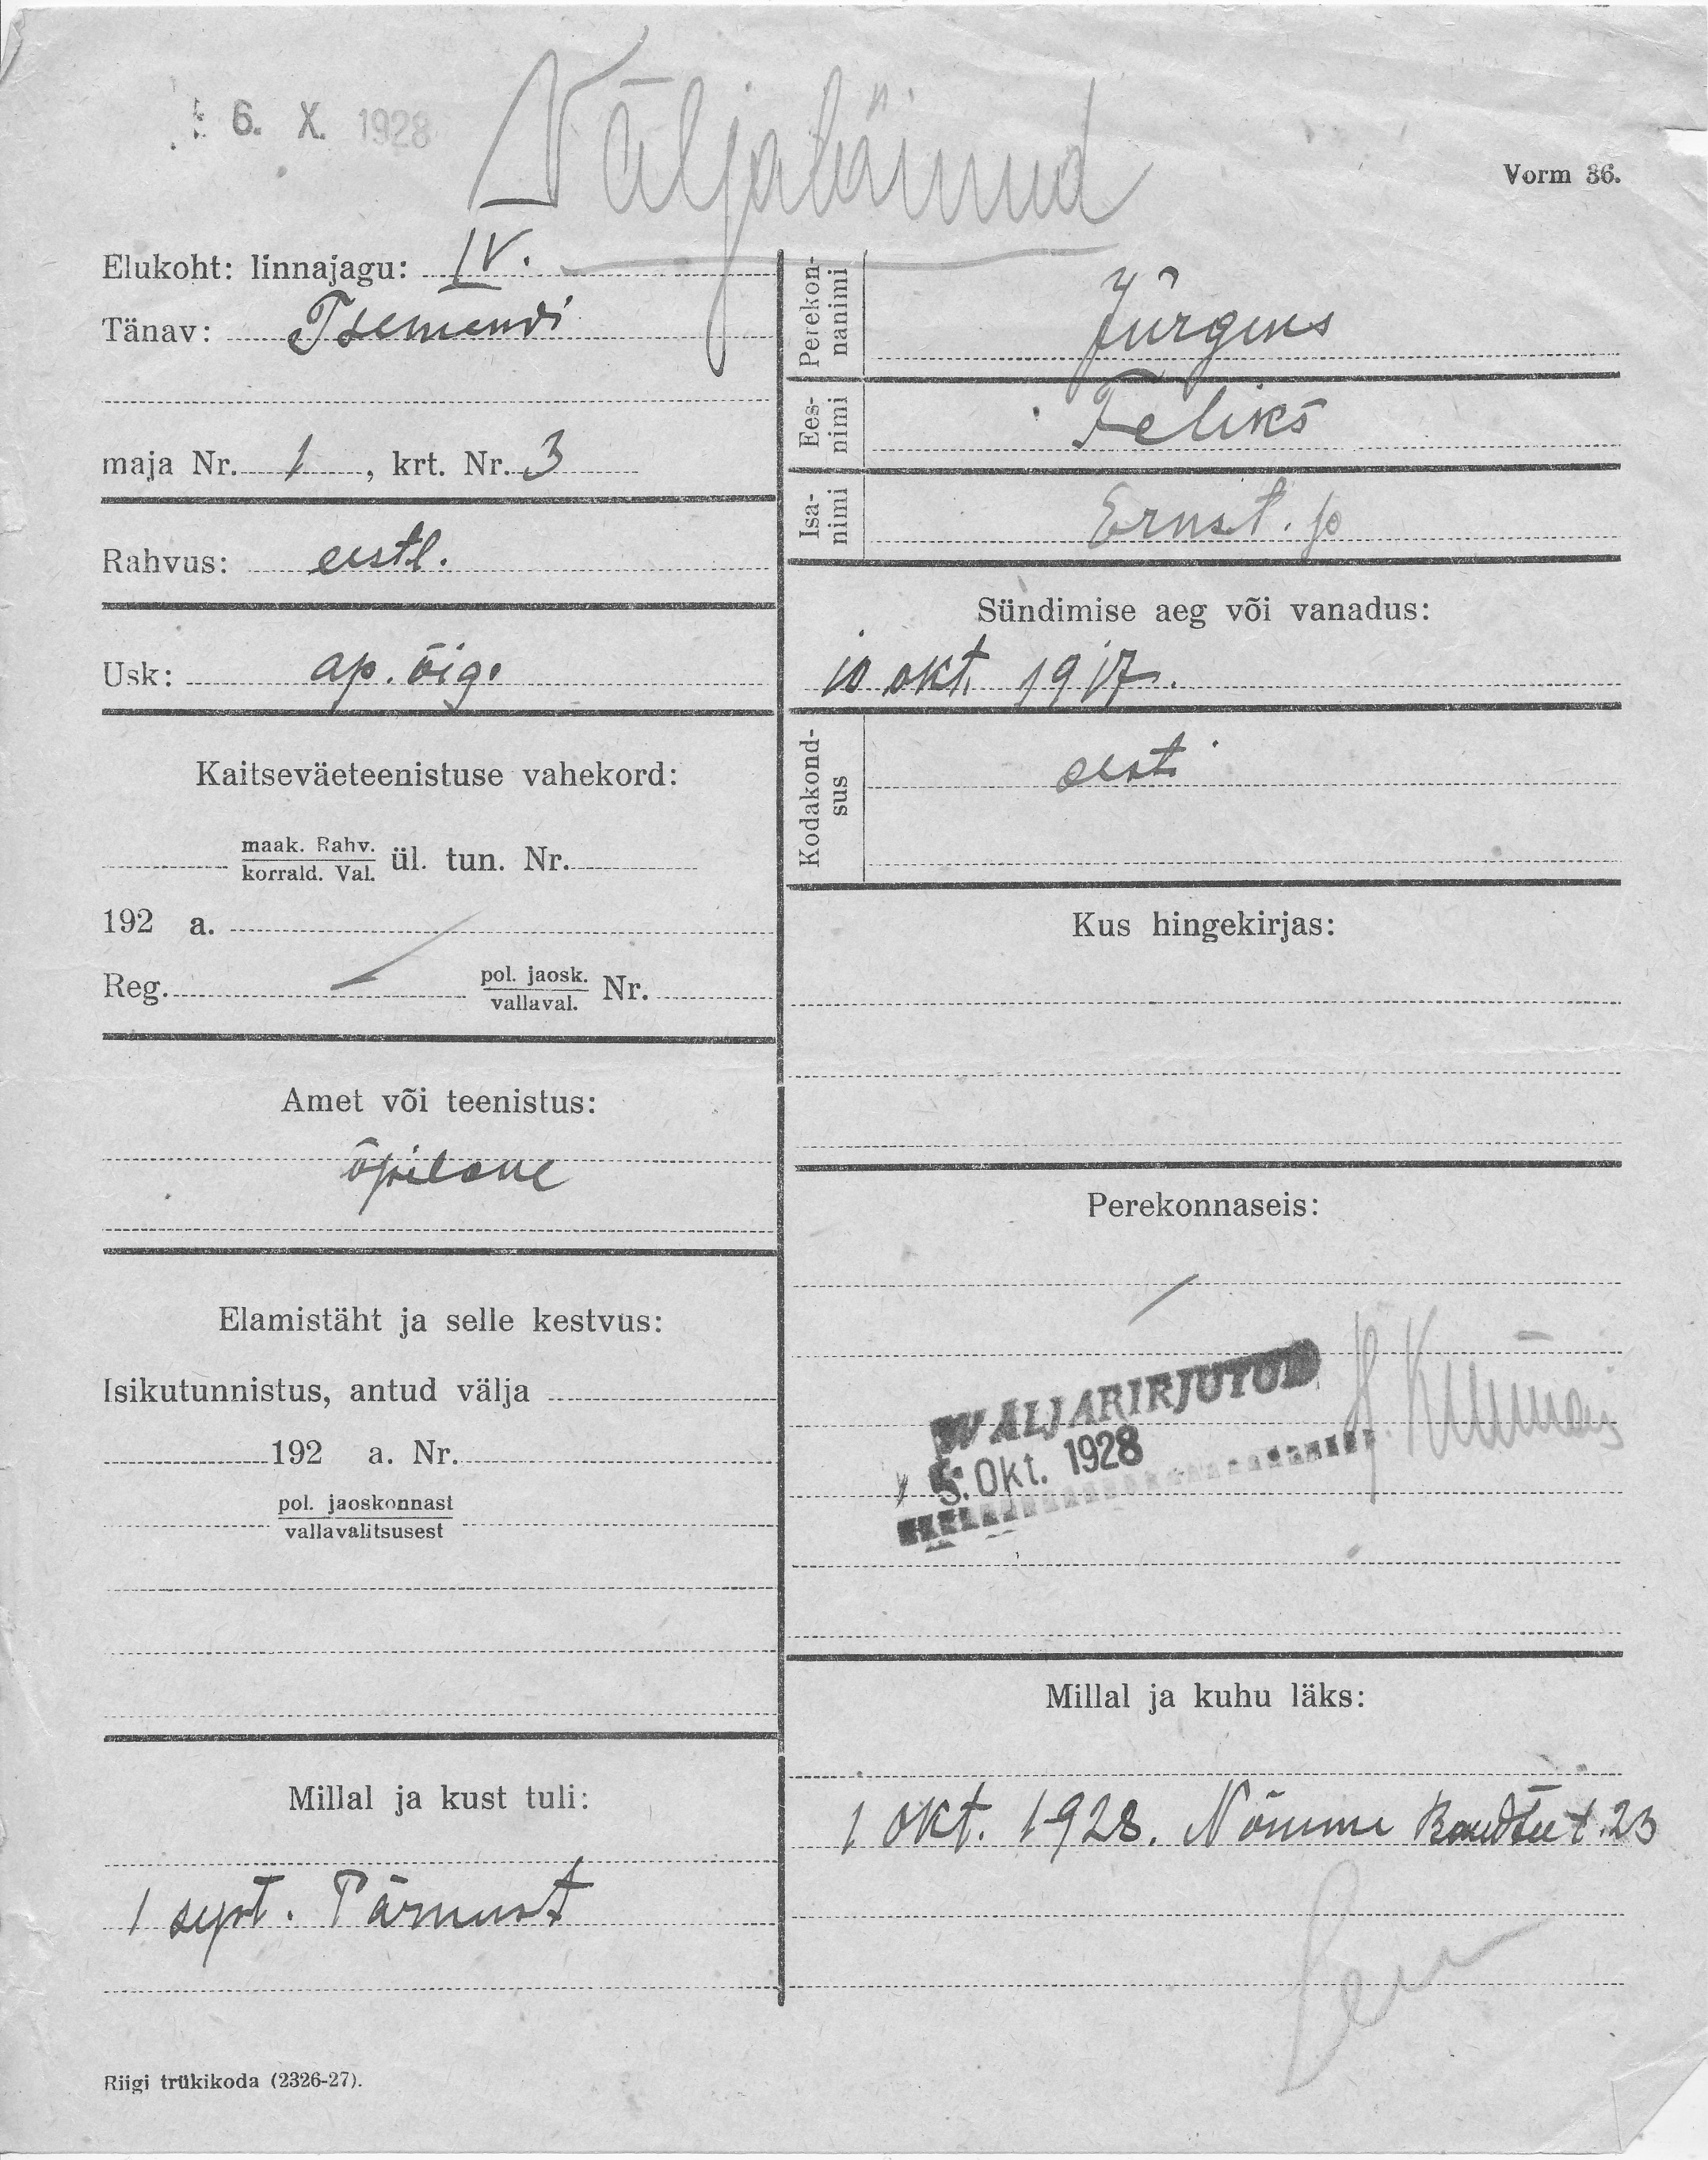 6. X. 1928
Väljaläinud
Vorm 36.
Elukoht: linnajagu: IV.
Tänav: Tsemendi
maja Nr. 1, krt. Nr. 3
Rahvus: eestl.
Usk: ap. õig.
Kaitseväeteenistuse vahekord:
maak. Rahv.
korrald. Val.
ül. tun. Nr.
192 a.
Reg.
pol. jaosk.
vallaval.
Nr.
Amet või teenistus:
õpilane
Elamistäht ja selle kestvus:
Isikutunnistus, antud välja
192 a. Nr.
pol. jaoskonnast
vallavalitsusest
Millal ja kust tuli:
1 sept. Pärnust
Perekon-
nanimi
Jürgens
Ees-
nimi
Feliks
Isa-
nimi
Ernst. p
Sündimise aeg või vanadus:
10 okt. 1917.
Kodakond-
sus
eesti
Kus hingekirjas:
Perekonnaseis:
WÄLJAKIRJUTUD
5. Okt. 1928
Millal ja kuhu läks:
1 okt. 1928. Nõmme Raudtee t. 23
Riigi trükikoda (2326-27).